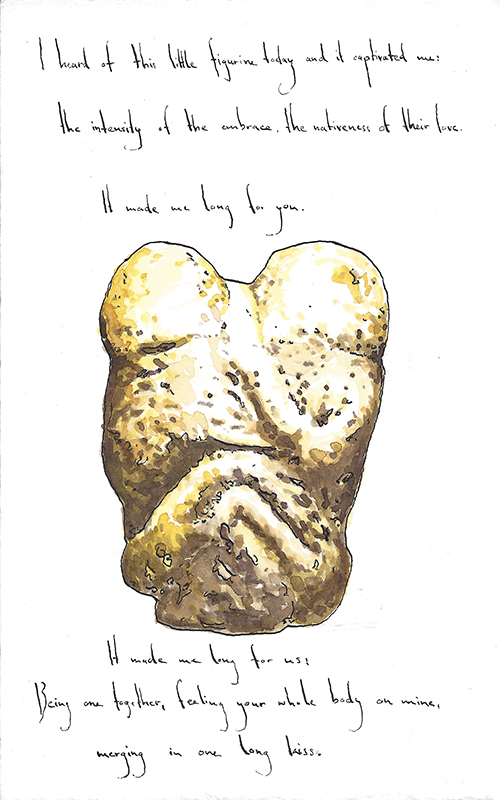 I heard of this little figurine today and it captivated me:
the intensity of the embrace, the nativeness of their love.
It made me long for you.
It made me long for us:
Being one together, feeling your whole body on mine,
merging in one long kiss.